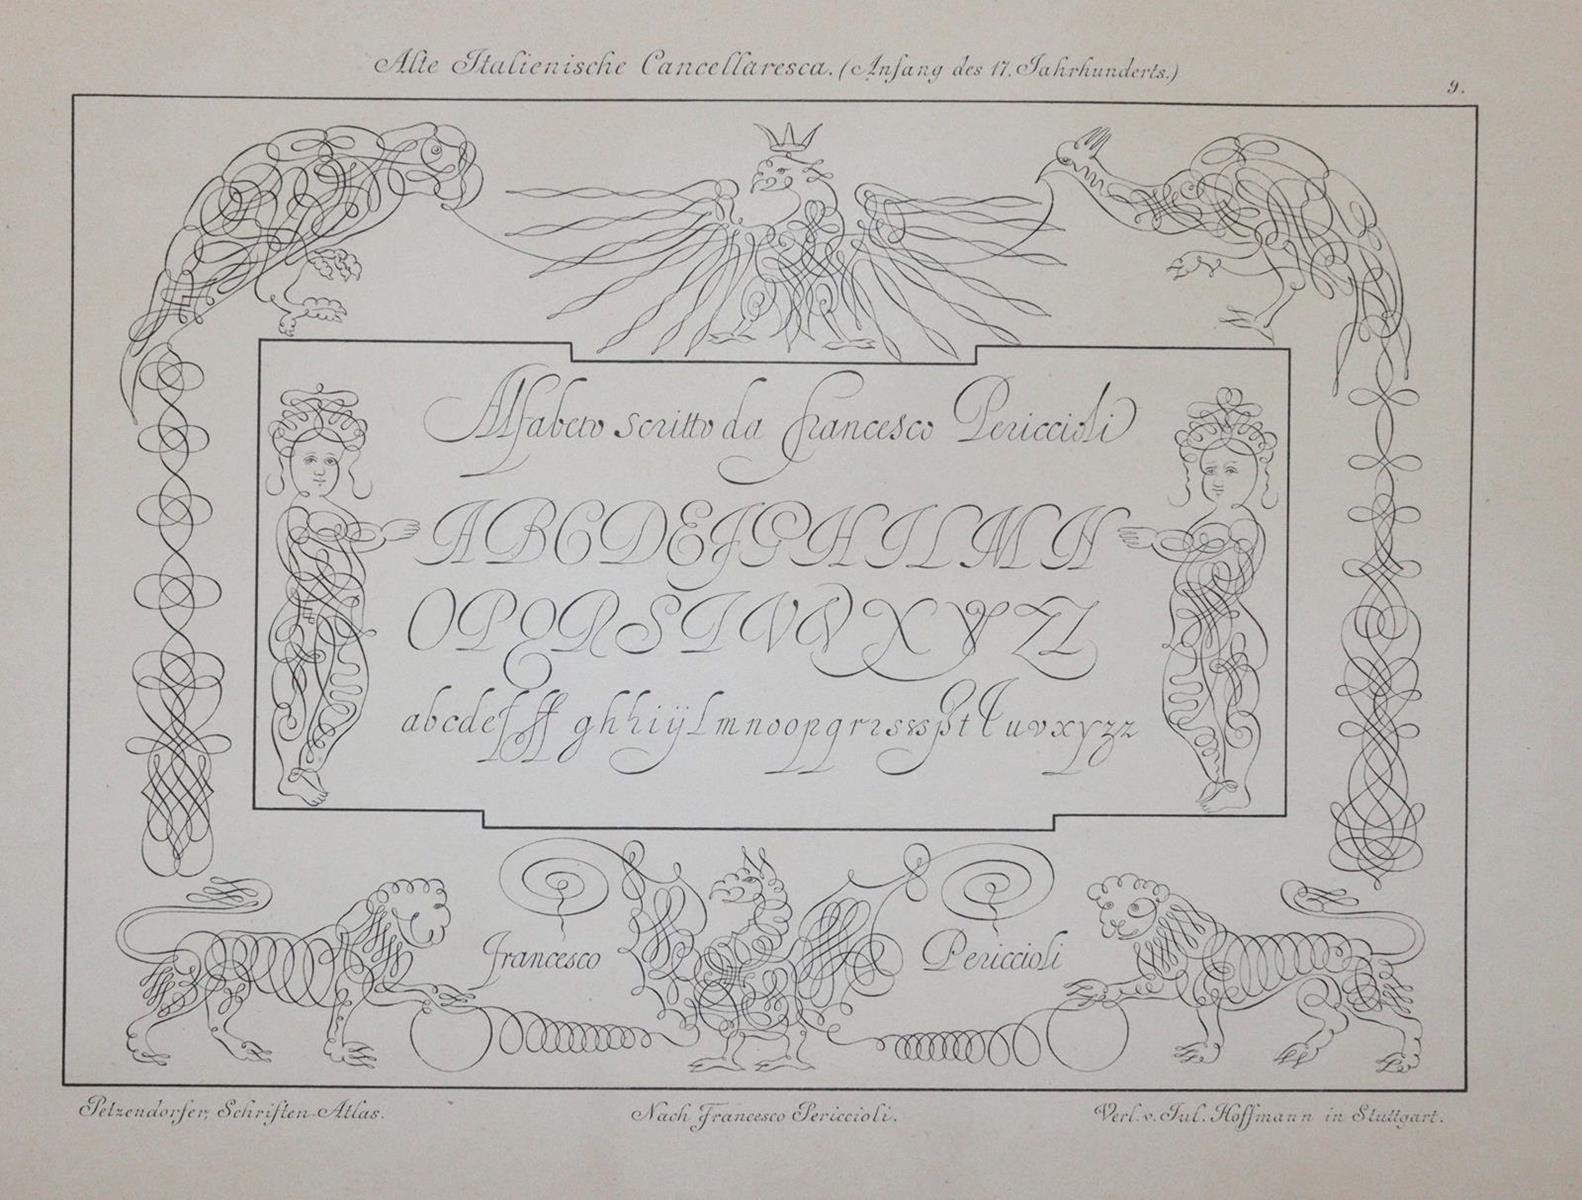 Alte Italienische Cancellaresca. (Anfang des 17. Jahrhunderts.)
9.
Alfabeto scritto da francesco Periccioli
A B C D E F G H I L M N
O P Q R S T V V X Y Z
a b c d e f ff g h h i ij l m n o o p q r r s s s ß t t u v x y z z
francesco Periccioli
Petzendorfer, Schriften-Atlas.
Nach Francesco Periccioli.
Verl. v. Jul. Hoffmann in Stuttgart.